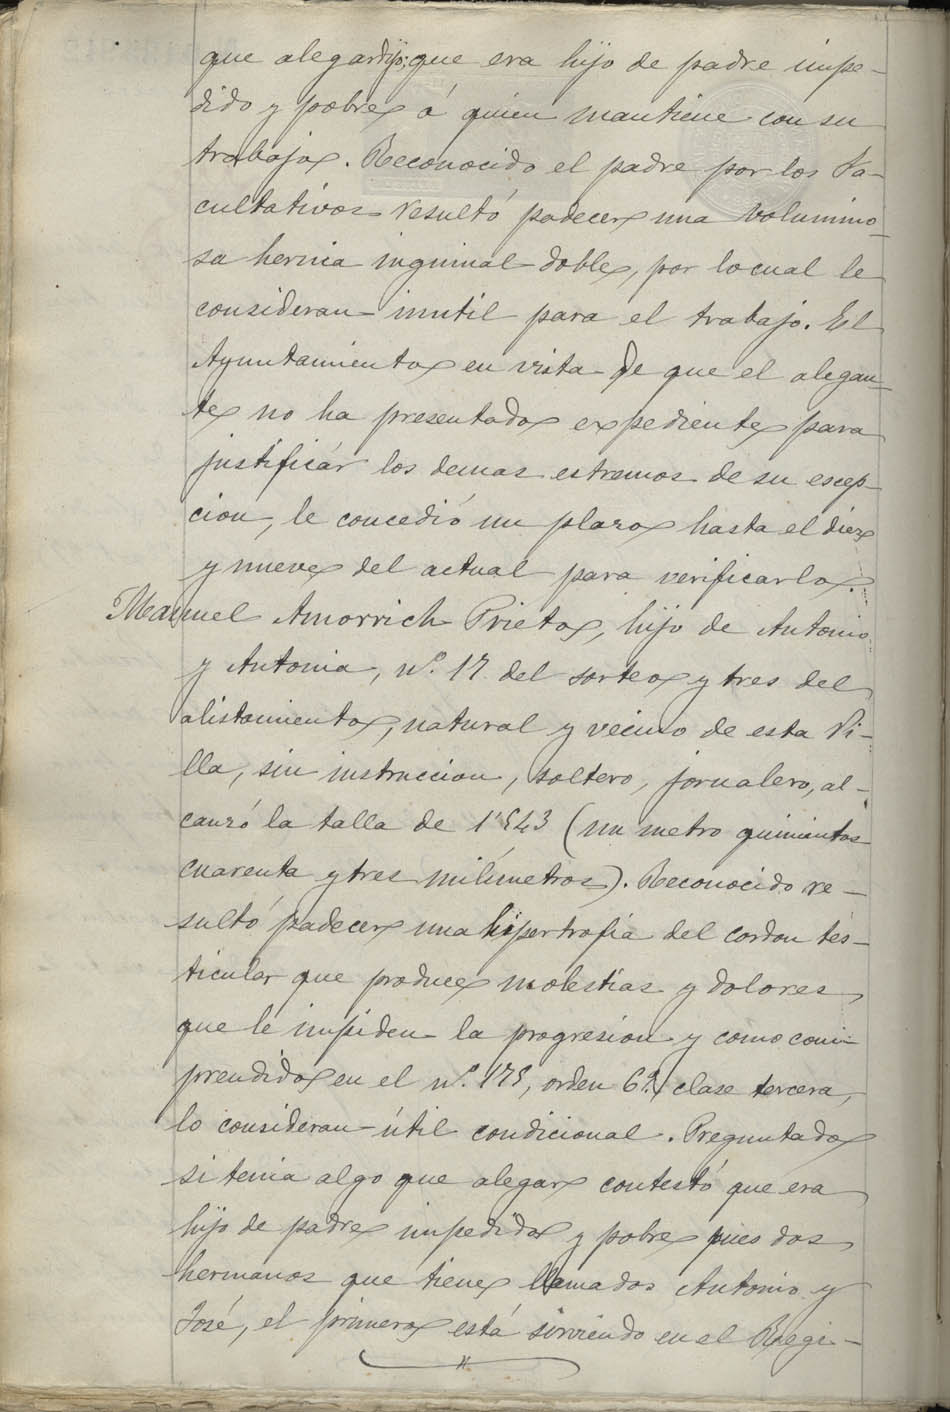 que alegar dijo; que era hijo de padre impe-
dido y pobre á quien mantiene con su
trabajo. Reconocido el padre por los Fa-
cultativos resultó padecer una volumino-
sa hernia inguinal doble, por lo cual le
consideran inutil para el trabajo. El
Ayuntamiento en vista de que el alegan-
te no ha presentado expediente para
justificár los demas estremos de su escep-
cion, le concedió un plazo hasta el diez
y nueve del actual para verificarlo.
Manuel Amorrich Prieto, hijo de Antonio
y Antonia, nº. 17 del sorteo y tres del
alistamiento, natural y vecino de esta Vi-
lla, sin instruccion, soltero, jornalero, al-
canzó la talla de 1'543 (un metro quinientos
cuarenta y tres milímetros). Reconocido re-
sultó padecer una hipertrofia del cordon tes-
ticular que produce molestias y dolores
que le impiden la progresion y como com-
prendido en el nº. 175, orden 6º, clase tercera,
lo consideran útil condicional. Preguntado
si tenia algo que alegar contestó que era
hijo de padre impedido y pobre pues dos
hermanos que tiene llamados Antonio y
José, el primero está sirviendo en el Regi-